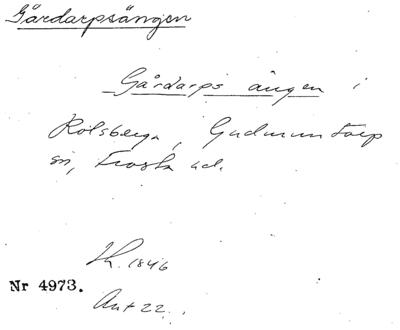 Gårdarpsängen
Gårdarps ängen i
Rolsberga, Gudmuntorp
sn, Frosta hd.
Lh. 1846
Nr 4973.
Ant 22.